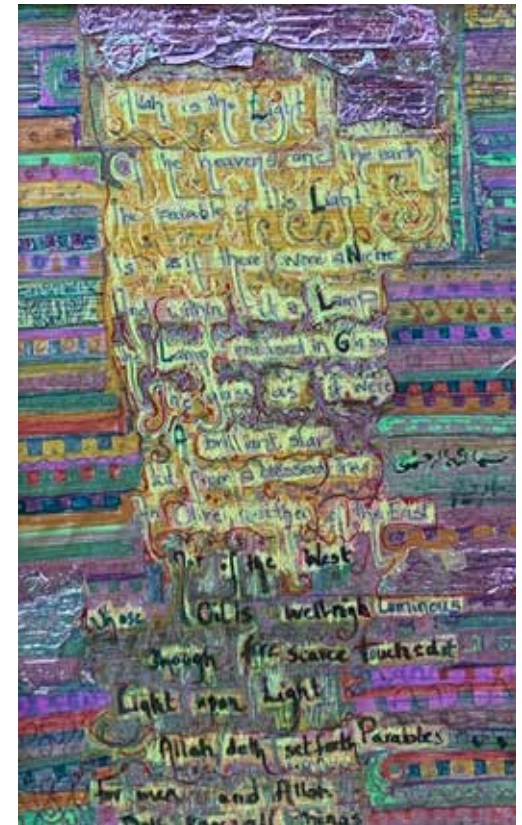 Allah is the Light
Of the heavens and the earth
The Parable of His Light
is as if there were a Niche
And within it a Lamp
the Lamp enclosed in Glass
The glass as it were
A brilliant star
Lit from a blessed Tree
An Olive, neither of the East
nor of the West
Whose Oil is well-nigh Luminous
Though fire scarce touched it
Light upon Light
Allah doth set forth Parables
for men and Allah
Doth know all things